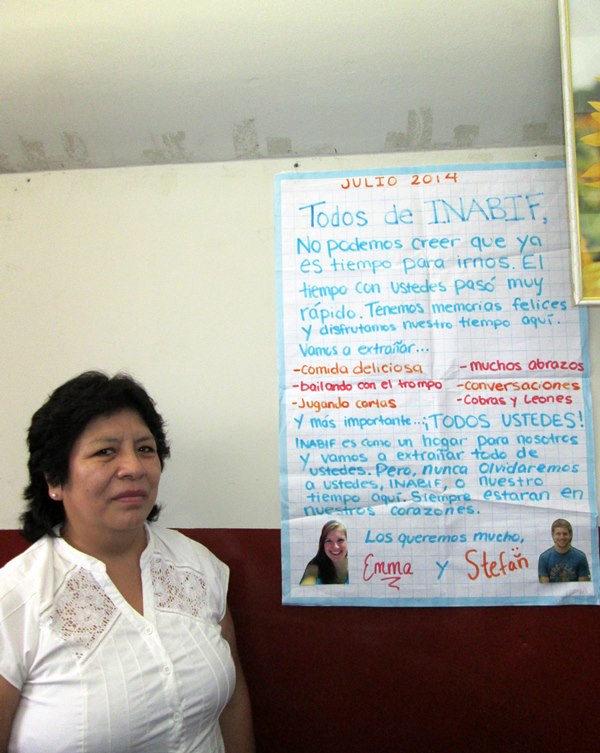 JULIO 2014
Todos de INABIF,
No podemos creer que ya
es tiempo para irnos. El
tiempo con ustedes pasó muy
rápido. Tenemos memorias felices
y disfrutamos nuestro tiempo aquí.
Vamos a extrañar...
-Comida deliciosa -muchos abrazos
-bailando con el trompo -conversaciones
-Jugando cartas -Cobras y Leones
Y más importante...¡TODOS USTEDES!
INABIF es como un hogar para nosotros
y vamos a extrañar todo de
ustedes. Pero, nunca olvidaremos
a ustedes, INABIF, o nuestro
tiempo aquí. Siempre estaran en
nuestros corazones.
Los queremos mucho,
Emma y Stefan